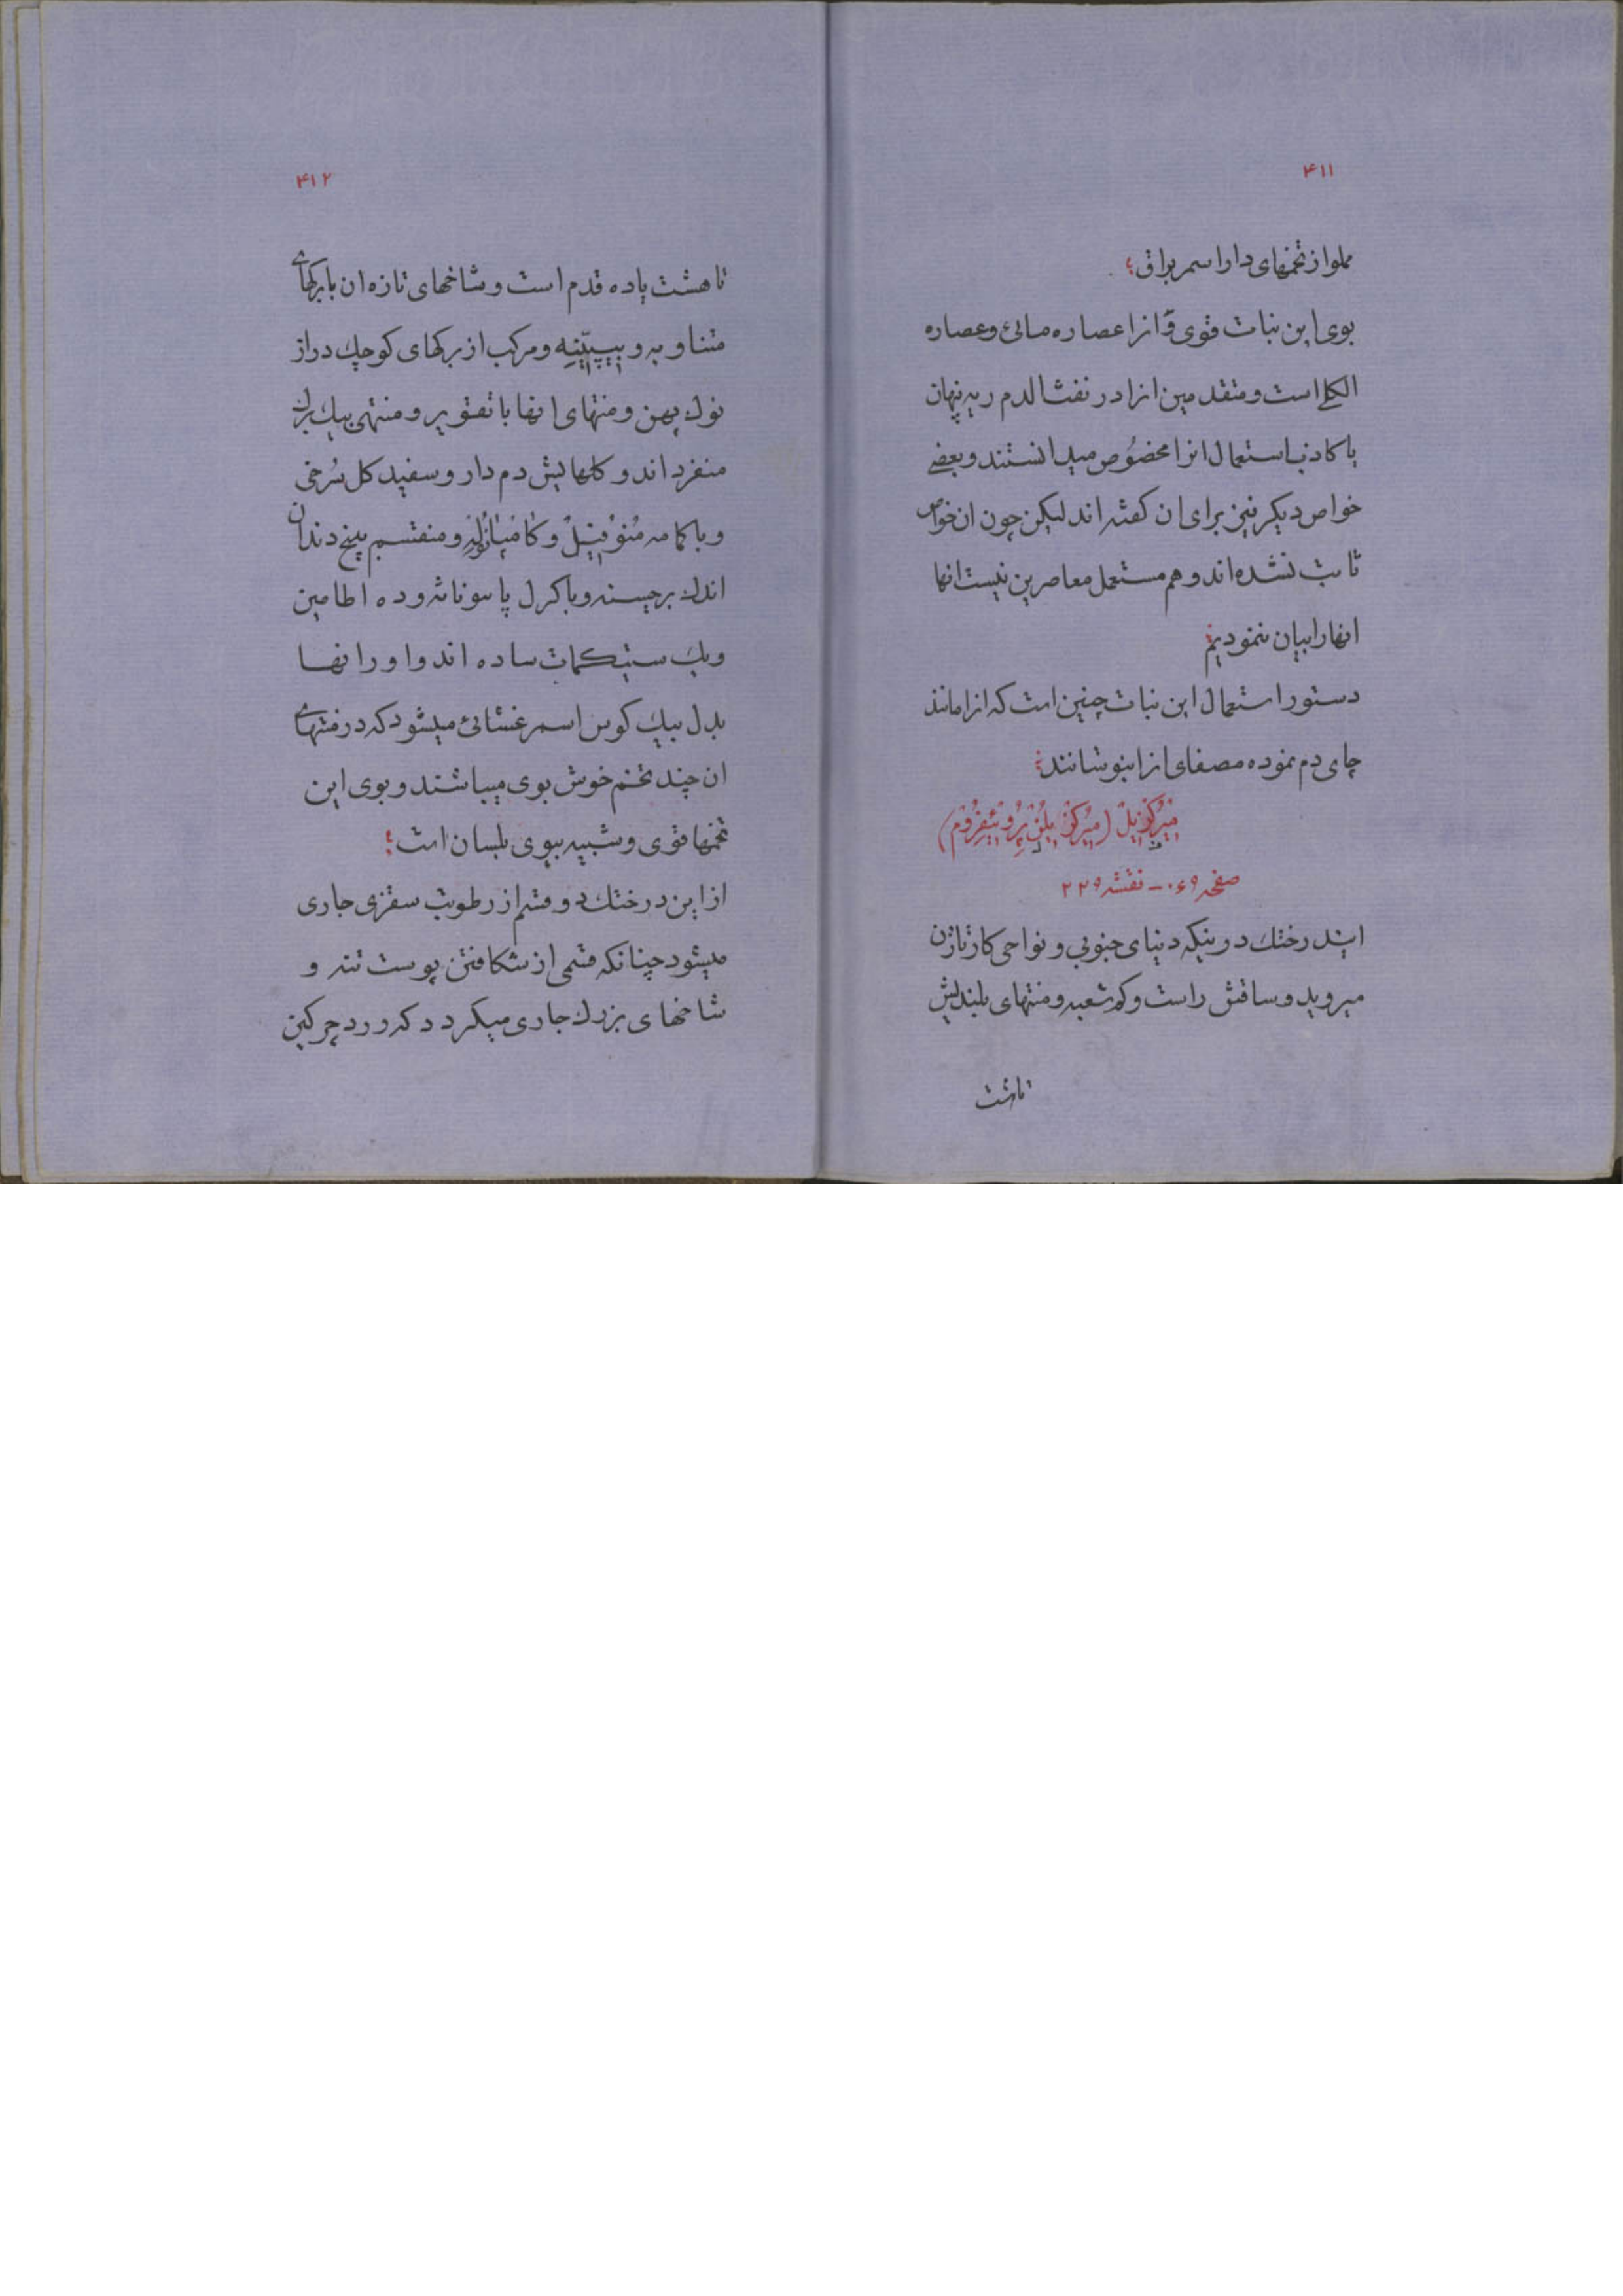 ۴۱۱
مملو از تخمهای دارا سمر براق؛
بوی این نبات قوی و انرا عصاره مائی و عصاره
الکلی است و متقدمین انرا در نفث الدم ریه پنهان
یا کاذب استعمال انرا مخصُوص میدانستند و بعضے
خواص دیگر نیز برای ان کفته اند لیکن چون ان خواص
ثابت نشده اند و هم مستعمل معاصرین نیست انها
انها را بیان ننمودیم
دستور استعمال این نبات چنین است که انرا مانند
چای دم نموده مصفای انرا بنوشانند؛
صفحه ۰۶۹ – نقشه ۲۲۹
ایندرختك در ینکه دنیای جنوبی و نواحی کارتاژن
میروید و ساقش راست و کم شعبه و منتهای بلندیش
تا هشت
۴۱۲
تا هشت یا ده قدم است و شاخهای تازه ان با برکهاے
متناوبه و پیپیّنه و مرکب از برکهای کوچك دراز
نوك پهن و منتهای انها با تقویر و منتهی بیك برك
منفرد اند و کلهایش دم دار و سفید کل سُرخی
و با کامه مُنوُفیلْ و کامپانولِه و منقسم به پنج دندان
اندك برجسته و با کرل پاسونانه و ده اطامین
ویك ستیکمات ساده اند و اورانها
بدل بیك کوس اسمر غشائی میشود که در منتهاے
ان چند تخم خوش بوی میباشند و بوی این
تخمها قوی و شبیه ببوی بلسان است؛
از این درختك دو قسم از رطوبت سقزی جاری
میشود چنانکه قسمی از شکافتن پوست تنه و
شاخهای بزرك جاری میکردد که زرد چرکین